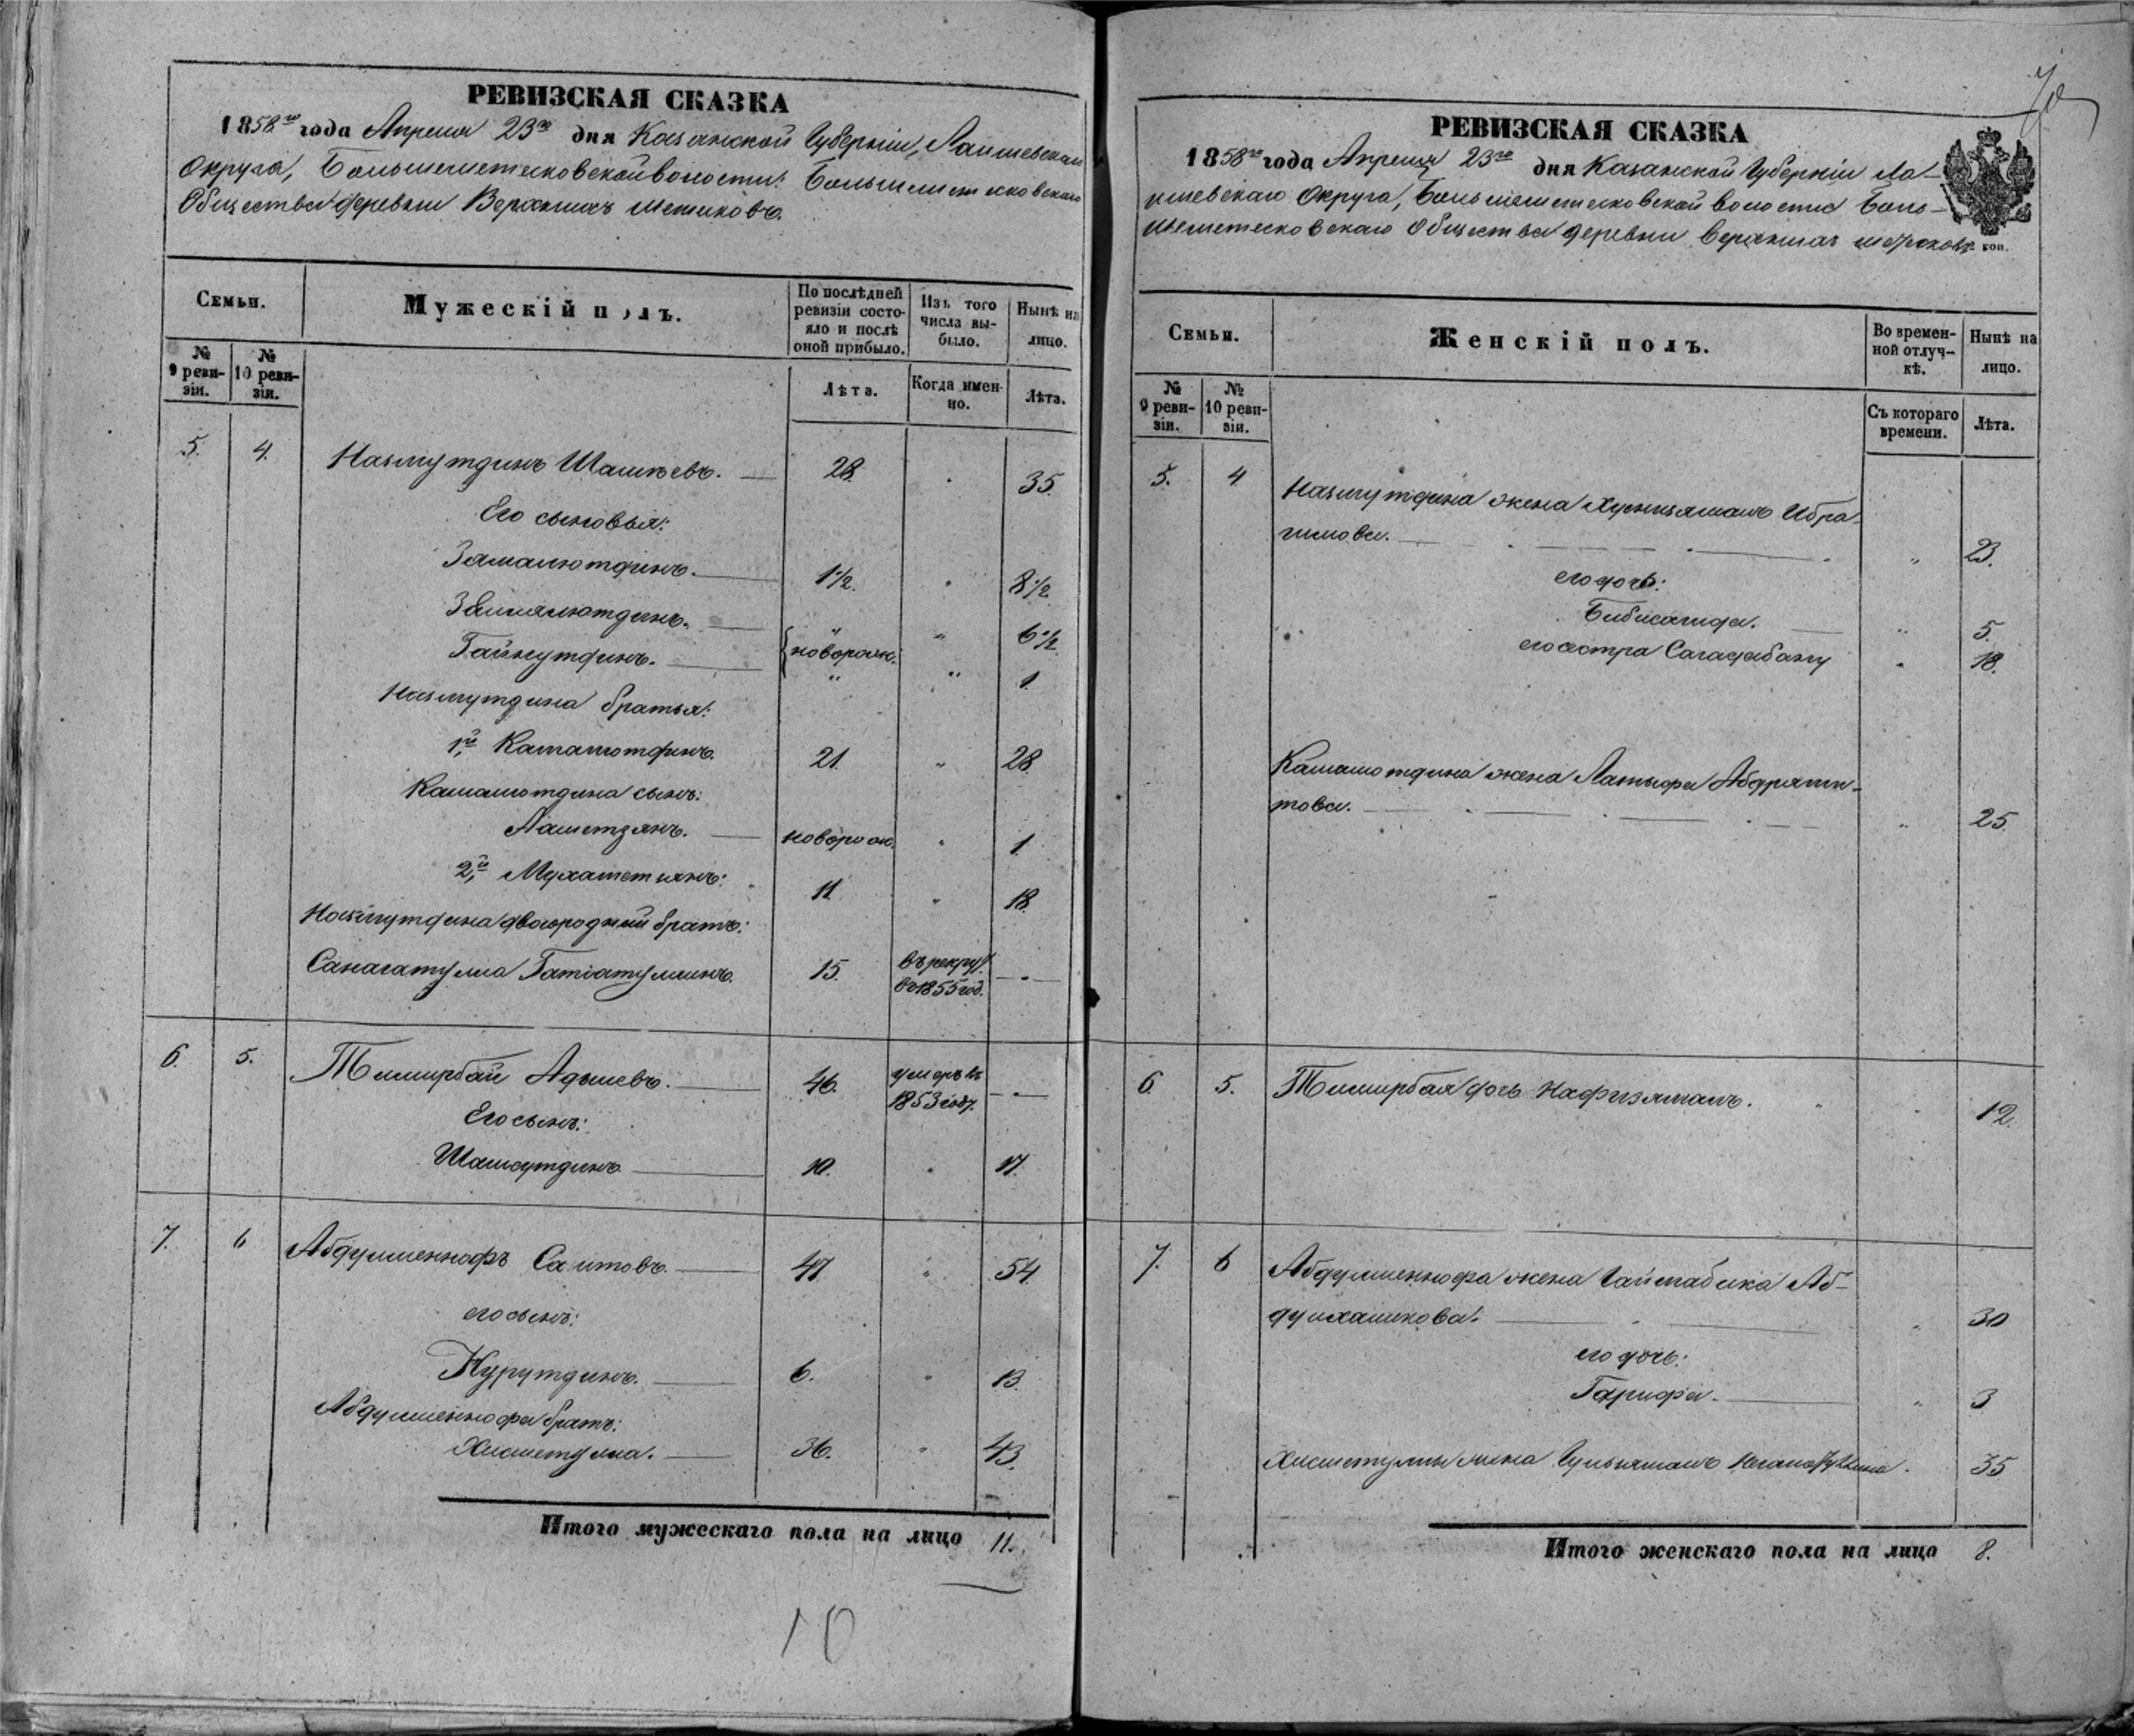 РЕВИЗСКАЯ СКАЗКА
1858го года Апреля 23го дня Казанской Губернiи, Лаишевскаго
Округа, Большеметесковской волости: Большеметесковскаго
Общества деревни Верхнихъ метесковъ.
Семьи.
Мужескiй полъ.
По послѣдней ревизiи состояло и послѣ оной прибыло.
Изъ того числа выбыло.
Нынѣ на лицо.
№ 9 ревизiи.
№ 10 ревизiи.
Лѣта.
Когда именно.
Лѣта.
5. 4. Назмутдинъ Шамѣевъ. 28. 35.
Его сыновья:
Замалютдинъ. 1 1/2. 8 1/2
Гайнутдинъ. новорож. 1.
6 1/2
Назмутдина братья:
1й Камалютдинъ. 21. 28
Камалютдина сынъ:
Ахметзянъ. новорож. 1.
2й Мухаметзянъ: 11. 18.
Назмутдина двоюродный братъ:
Санагатулла Гатiатуллинъ. 15. въ рекру. въ 1855 год.
6. 5. Тимирбай Адышевъ. 46. умеръ въ 1853 году.
Его сынъ:
Шамсутдинъ 10. 17.
7. 6 Абдулменнофъ Саитовъ. 47 54.
его сынъ:
Нурутдинъ. 6. 13.
Абдулменнофа братъ:
Хисметулла. 36. 43.
Итого мужескаго пола на лицо 11.
10
РЕВИЗСКАЯ СКАЗКА
1858го года Апреля 23го дня Казанской Губернiи Ла-
ишевскаго Округа, Большеметесковской волости Боль-
шеметесковскаго Общества деревни Верхнихъ метесковъ
коп.
Семьи.
Женскiй полъ.
Во временной отлучкѣ.
Нынѣ на лицо.
№ 9 ревизiи.
№ 10 ревизiи.
Съ котораго времени.
Лѣта.
5. 4 Назмутдина жена Хуснизямалъ Ибра-
гимова. 23.
его дочь:
Бибисагида. 5.
его сестра Сагадабану 18.
Камалютдина жена Латыфа Абдряши-
това. 25
6. 5. Тимирбая дочь Нафизямалъ. 12.
7. 6 Абдулменнофа жена Гаймабика Аб-
дулхаликова. 30
его дочь:
Гарифа. 3
Хисметуллы жена Гульзямалъ 35
Итого женскаго пола на лицо 8.